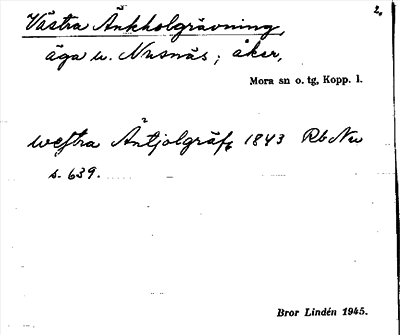 Västra Änkholgrävning, 2.
äga u. Nusnäs; åker,
Mora sn o. tg, Kopp. l.
westra Äntjolgräf, 1843 Rb Nu
s. 639.
Bror Lindén 1945.